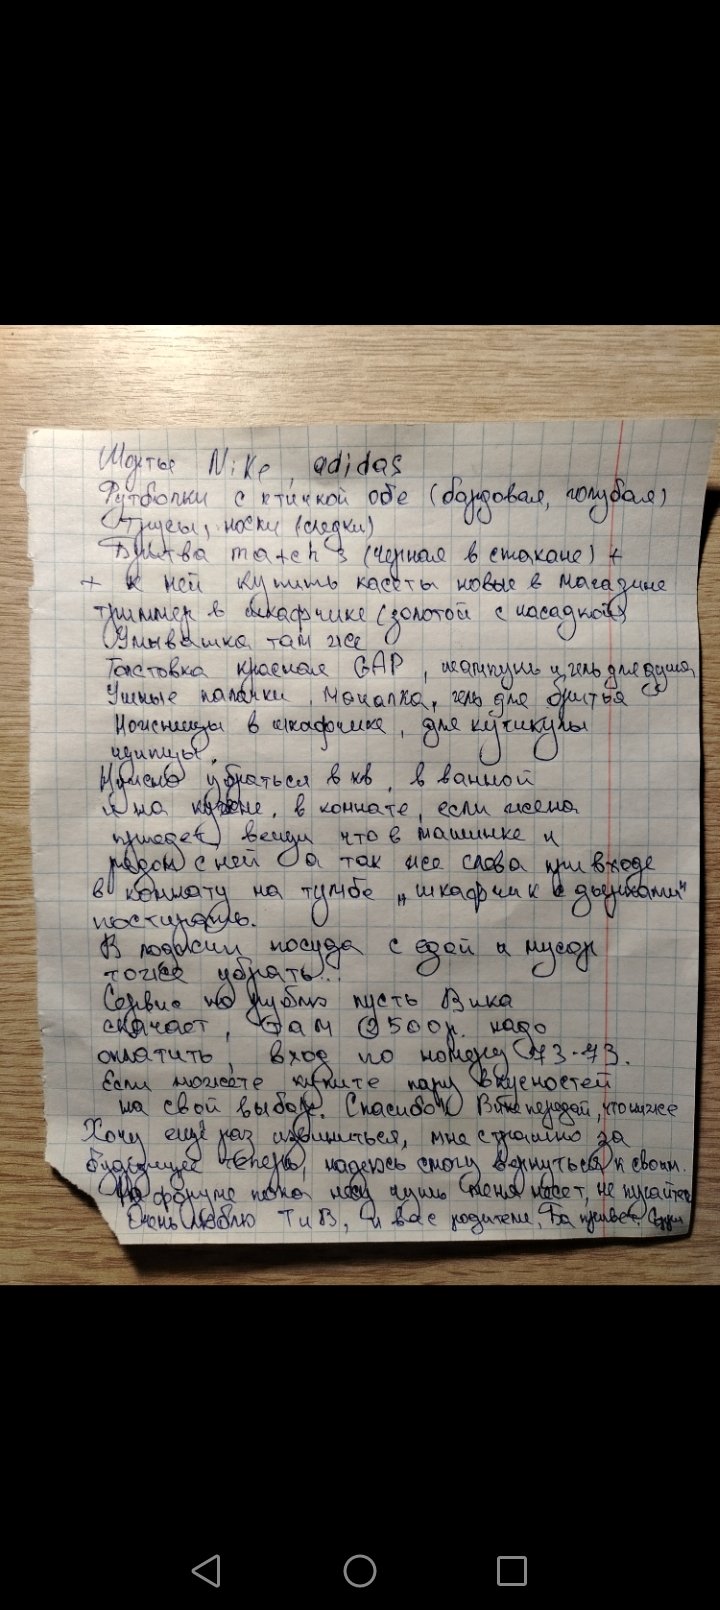 Шорты Nike, adidas
Футболки с птичкой обе (бардовая, голубая)
Трусы, носки (следки)
Бритва match 3 (черная в стакане) +
+ к ней купить касеты новые в магазине
триммер в шкафчике (золотой с насадкой)
Умывашка там же
Толстовка красная GAP, шампунь и гель для душа,
Ушные палочки, мочалка, гель для бритья
Ножницы в шкафчике, для кутикулы
щипцы.
Нужно убраться в кв, в ванной
и на кухне, в комнате, если жена
приедет, вещи что в машинке и
рядом с ней а так же слева при входе
в комнату на тумбе "шкафчик с
постирать.
В лоджии посуда с едой и мусор
тоже убрать...
Сервис по рублю пусть Вика
скачает, там 2500р. надо
оплатить, вход по номеру 73-73.
Если можете купите пару вкусностей
на свой выбор. Спасибо. Вике передай, что
Хочу ещё раз извиниться, мне страшно за
будующее теперь, надеюсь смогу вернуться к своим.
На форуме пока несу чушь меня несет, не пугайтесь
Очень люблю Т и В, и вас родители, Ба привет.